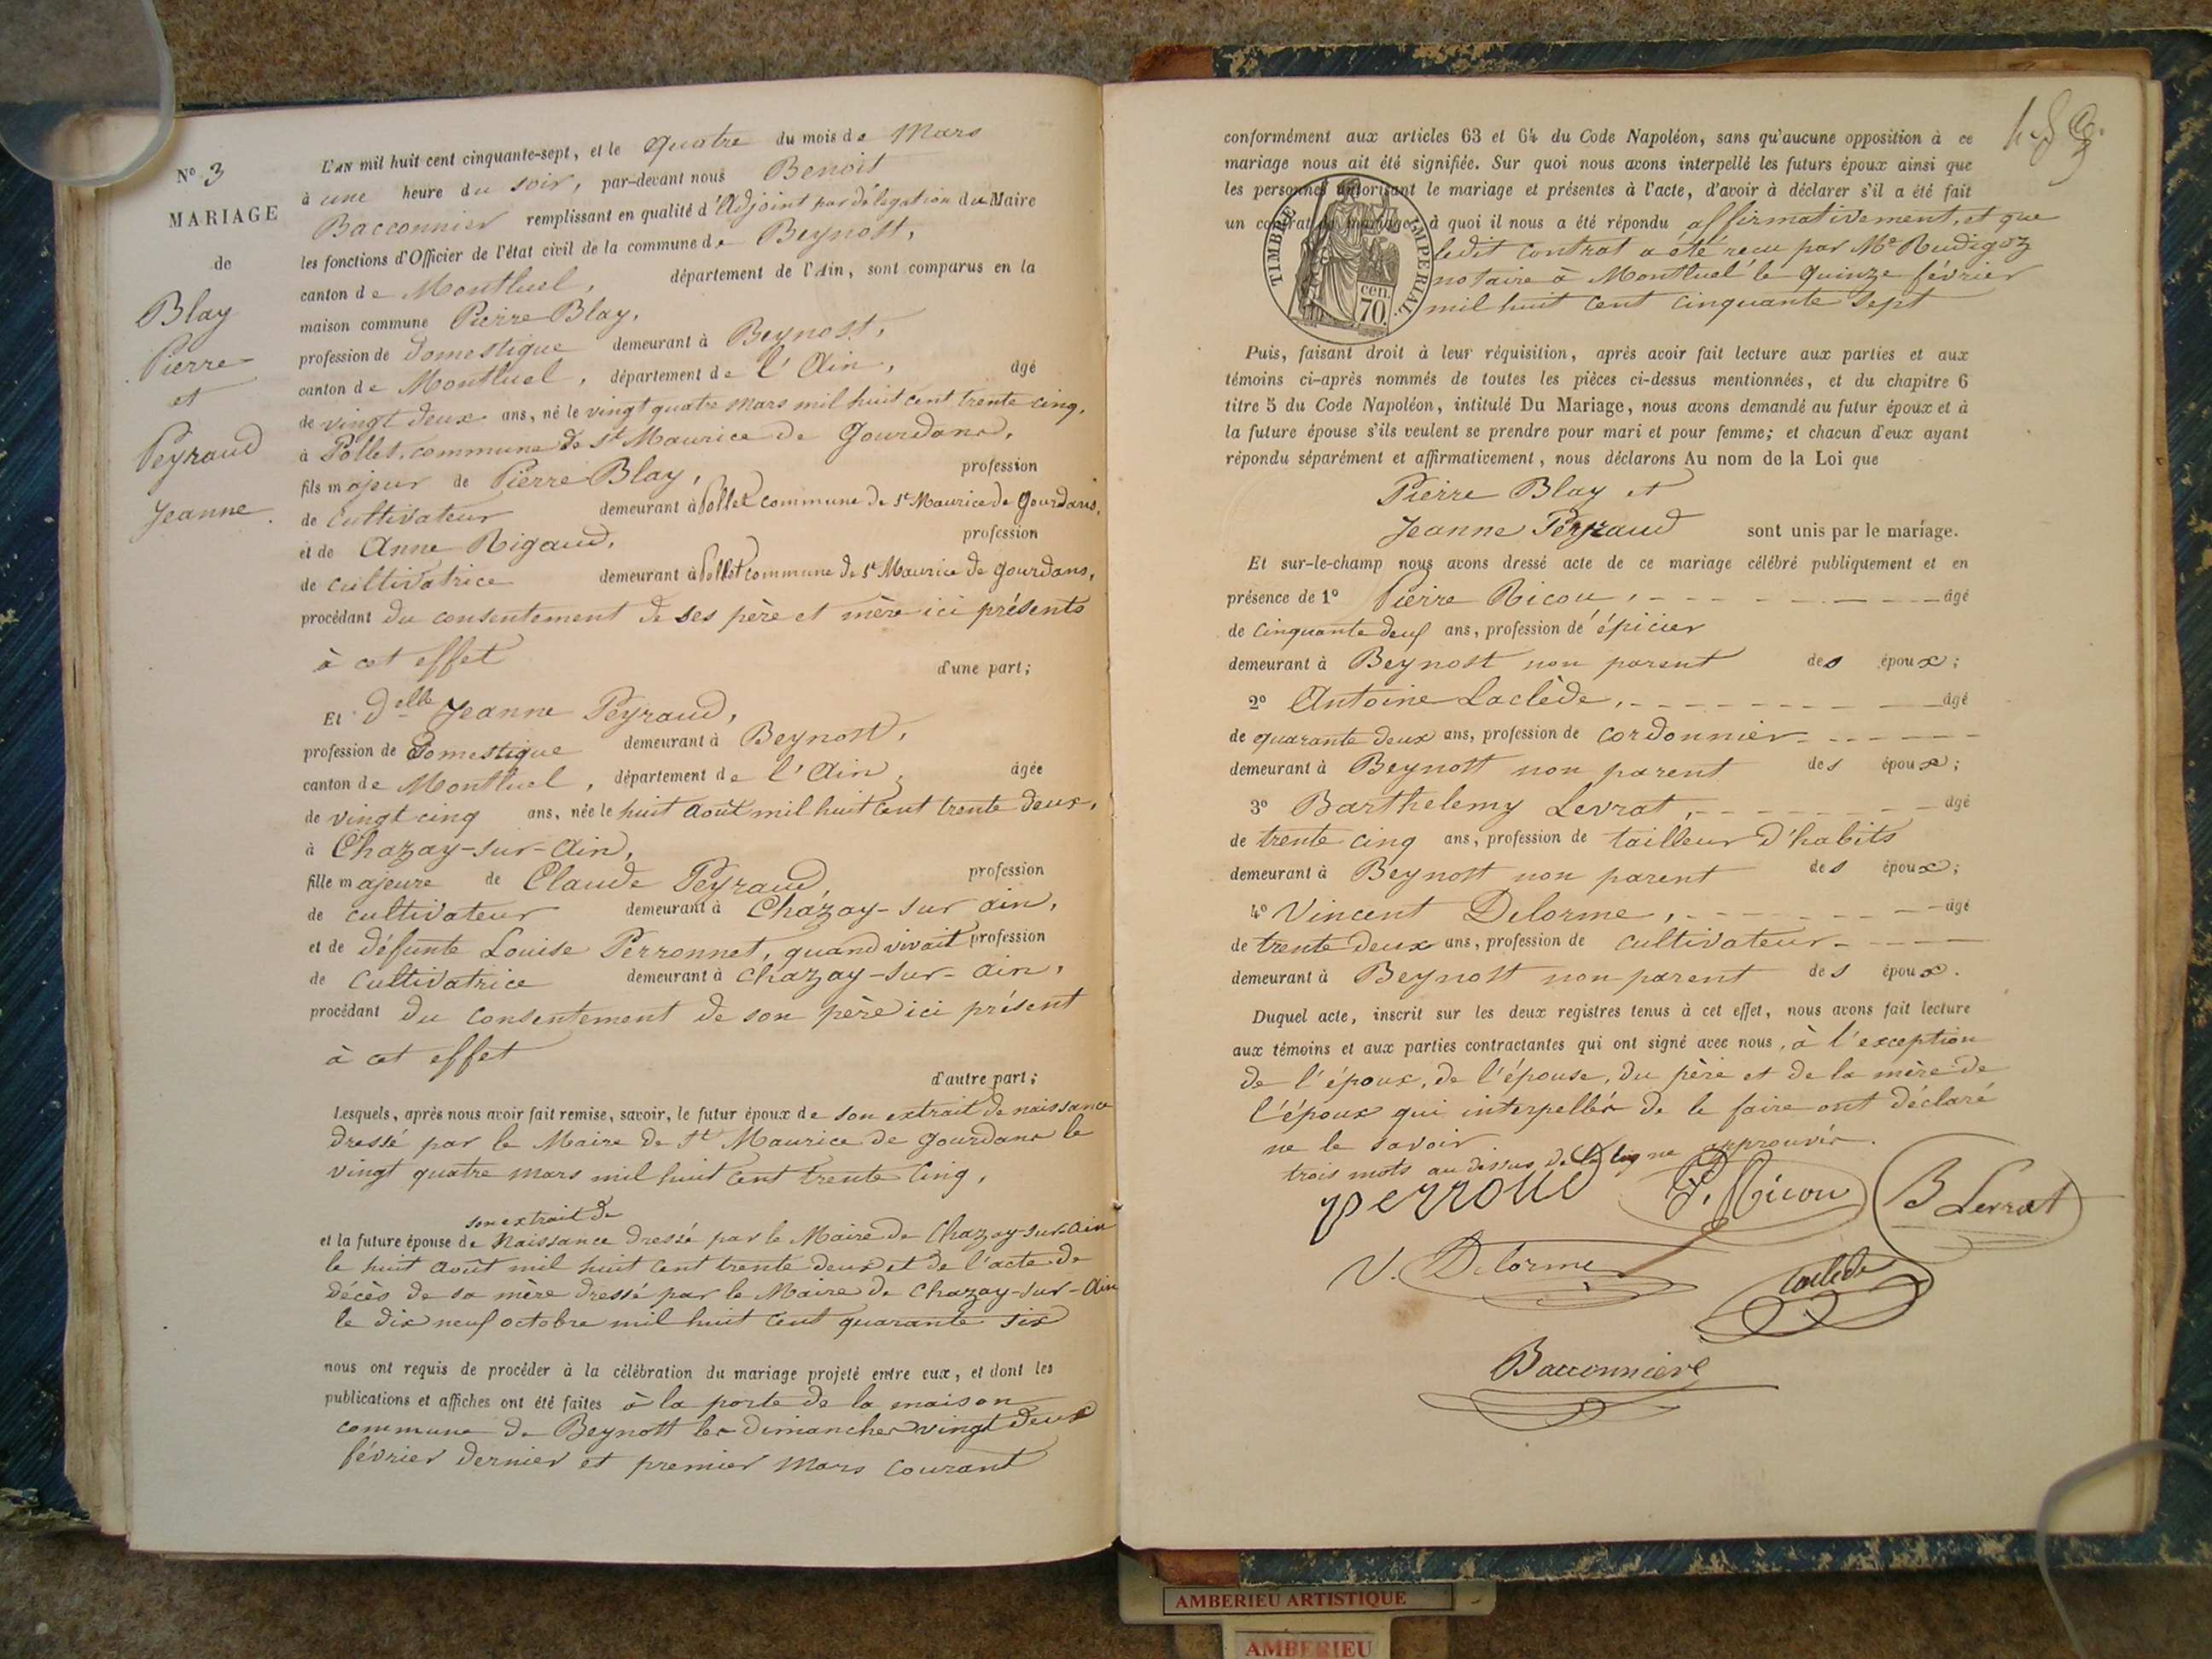 N° 3
MARIAGE
de
Blay
Pierre
et
Peyraud
Jeanne.
L'AN mil huit cent cinquante-sept, et le quatre du mois de Mars
à une heure du soir, par-devant nous Benoit
Bacconnier remplissant en qualité d'Adjoint par délégation du Maire
les fonctions d'Officier de l'état civil de la commune de Beynost,
canton de Montluel, département de l'Ain, sont comparus en la
maison commune Pierre Blay,
profession de domestique demeurant à Beynost,
canton de Montluel, département de l'Ain, âgé
de vingt deux ans, né le vingt quatre mars mil huit cent trente cinq,
à Pollet, commune de St Maurice de Gourdans,
fils majeur de Pierre Blay, profession
de cultivateur demeurant à Pollet commune de St Maurice de Gourdans,
et de Anne Rigaud, profession
de cultivatrice demeurant à Pollet commune de St Maurice de Gourdans,
procédant du consentement de ses père et mère ici présents
à cet effet d'une part;
Et delle Jeanne Peyraud,
profession de domestique demeurant à Beynost,
canton de Montluel, département de l'Ain, âgée
de vingt cinq ans, née le huit août mil huit cent trente deux,
à Chazay-sur-Ain,
fille majeure de Claude Peyraud, profession
de cultivateur demeurant à Chazay-sur ain,
et de défunte Louise Perronnet, quand vivait profession
de cultivatrice demeurant à Chazay-sur-ain,
procédant du consentement de son père ici présent
à cet effet
d'autre part;
Lesquels, après nous avoir fait remise, savoir, le futur époux de son extrait de naissance
dressé par le Maire de St Maurice de Gourdans le
vingt quatre mars mil huit cent trente cinq,
son extrait de
et la future épouse de Naissance dressé par le Maire de Chazay-sur-Ain
le huit août mil huit cent trente deux et de l'acte de
décès de sa mère dressé par le Maire de Chazay-sur-Ain
le dix neuf octobre mil huit cent quarante six
nous ont requis de procéder à la célébration du mariage projeté entre eux, et dont les
publications et affiches ont été faites à la porte de la maison
commune de Beynost les dimanches vingt deux
février dernier et premier mars courant
conformément aux articles 63 et 64 du Code Napoléon, sans qu'aucune opposition à ce
mariage nous ait été signifiée. Sur quoi nous avons interpellé les futurs époux ainsi que
les personnes autorisant le mariage et présentes à l'acte, d'avoir à déclarer s'il a été fait
un contrat de mariage; à quoi il nous a été répondu affirmativement, et que
ledit contrat a été reçu par Me Rudigoz
notaire à Montluel le quinze février
mil huit cent cinquante sept
TIMBRE IMPERIAL
cen. 70
Puis, faisant droit à leur réquisition, après avoir fait lecture aux parties et aux
témoins ci-après nommés de toutes les pièces ci-dessus mentionnées, et du chapitre 6
titre 5 du Code Napoléon, intitulé Du Mariage, nous avons demandé au futur époux et à
la future épouse s'ils veulent se prendre pour mari et pour femme; et chacun d'eux ayant
répondu séparément et affirmativement, nous déclarons Au nom de la Loi que
Pierre Blay et
Jeanne Peyraud sont unis par le mariage.
Et sur-le-champ nous avons dressé acte de ce mariage célébré publiquement et en
présence de 1° Pierre Ricou, âgé
de cinquante deux ans, profession de épicier
demeurant à Beynost non parent des époux;
2° Antoine Laclède, âgé
de quarante deux ans, profession de cordonnier
demeurant à Beynost non parent des époux;
3° Barthelemy Levrat, âgé
de trente cinq ans, profession de tailleur d'habits
demeurant à Beynost non parent des époux;
4° Vincent Delorme, âgé
de trente deux ans, profession de cultivateur
demeurant à Beynost non parent des époux.
Duquel acte, inscrit sur les deux registres tenus à cet effet, nous avons fait lecture
aux témoins et aux parties contractantes qui ont signé avec nous, à l'exception
de l'époux, de l'épouse, du père et de la mère de
l'époux qui interpellés de le faire ont déclaré
ne le savoir.
trois mots au dessus de la ligne approuvés.
perroud P. Ricou B Levrat
V. Delorme Laclède
Bacconnier
AMBERIEU ARTISTIQUE
AMBERIEU